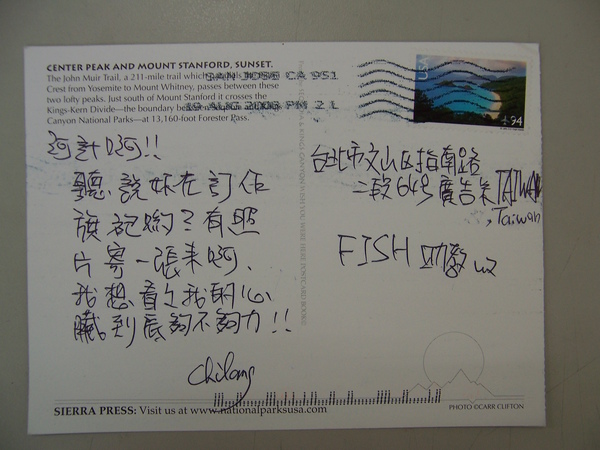 CENTER PEAK AND MOUNT STANFORD, SUNSET.
The John Muir Trail, a 211-mile trail which
Crest from Yosemite to Mount Whitney, passes between these
two lofty peaks. Just south of Mount Stanford it crosses the
Kings-Kern Divide—the boundary
Canyon National Parks—at 13,160-foot Forester Pass.
SAN JOSE CA 951
19 AUG 2008 PM 2 L
USA
94
阿!!
聽說妳在訂作
旗袍喲?有照
片寄一張來啊、
我想看之我的心
臟到底夠不夠力!!
Chilong
台北市文山区指南路
二段64号廣告系TAIWAN
Taiwan
FISH 助教 收
SIERRA PRESS: Visit us at www.nationalparksusa.com
PHOTO ©CARR CLIFTON